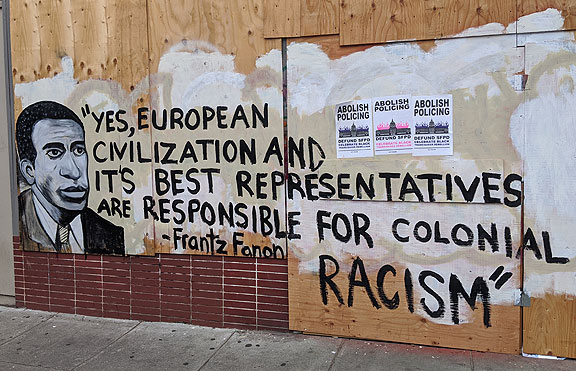 "YES, EUROPEAN
CIVILIZATION AND
IT'S BEST REPRESENTATIVES
ARE RESPONSIBLE FOR COLONIAL
RACISM"
-Frantz Fanon
ABOLISH
POLICING
DEFUND SFPD
CELEBRATE BLACK
ABOLISH
POLICING
DEFUND SFPD
CELEBRATE BLACK
ABOLISH
POLICING
DEFUND SFPD
CELEBRATE BLACK